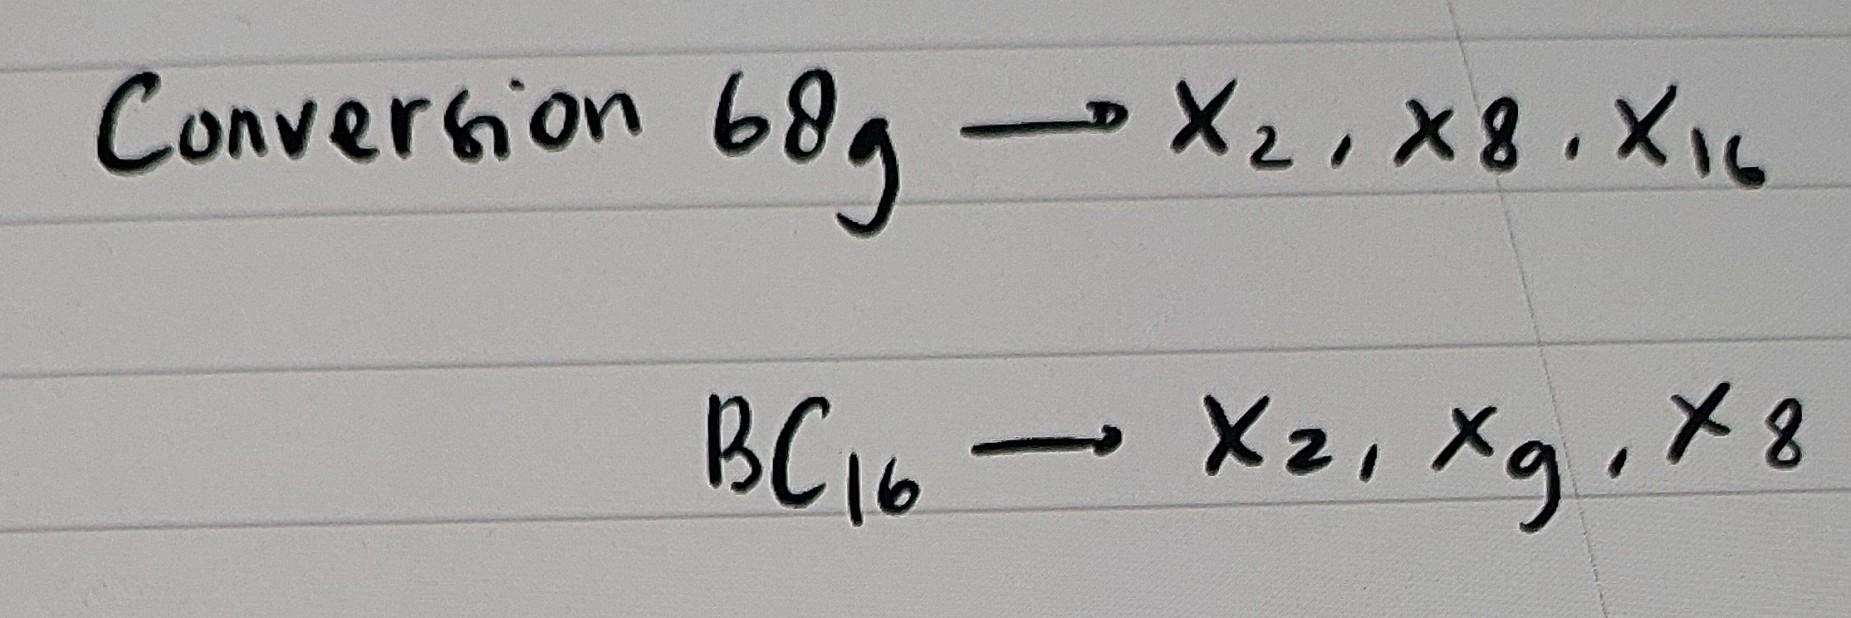 Conversion 68₉ → X₂, X8, X₁₆
BC₁₆ → X₂, X₉, X8